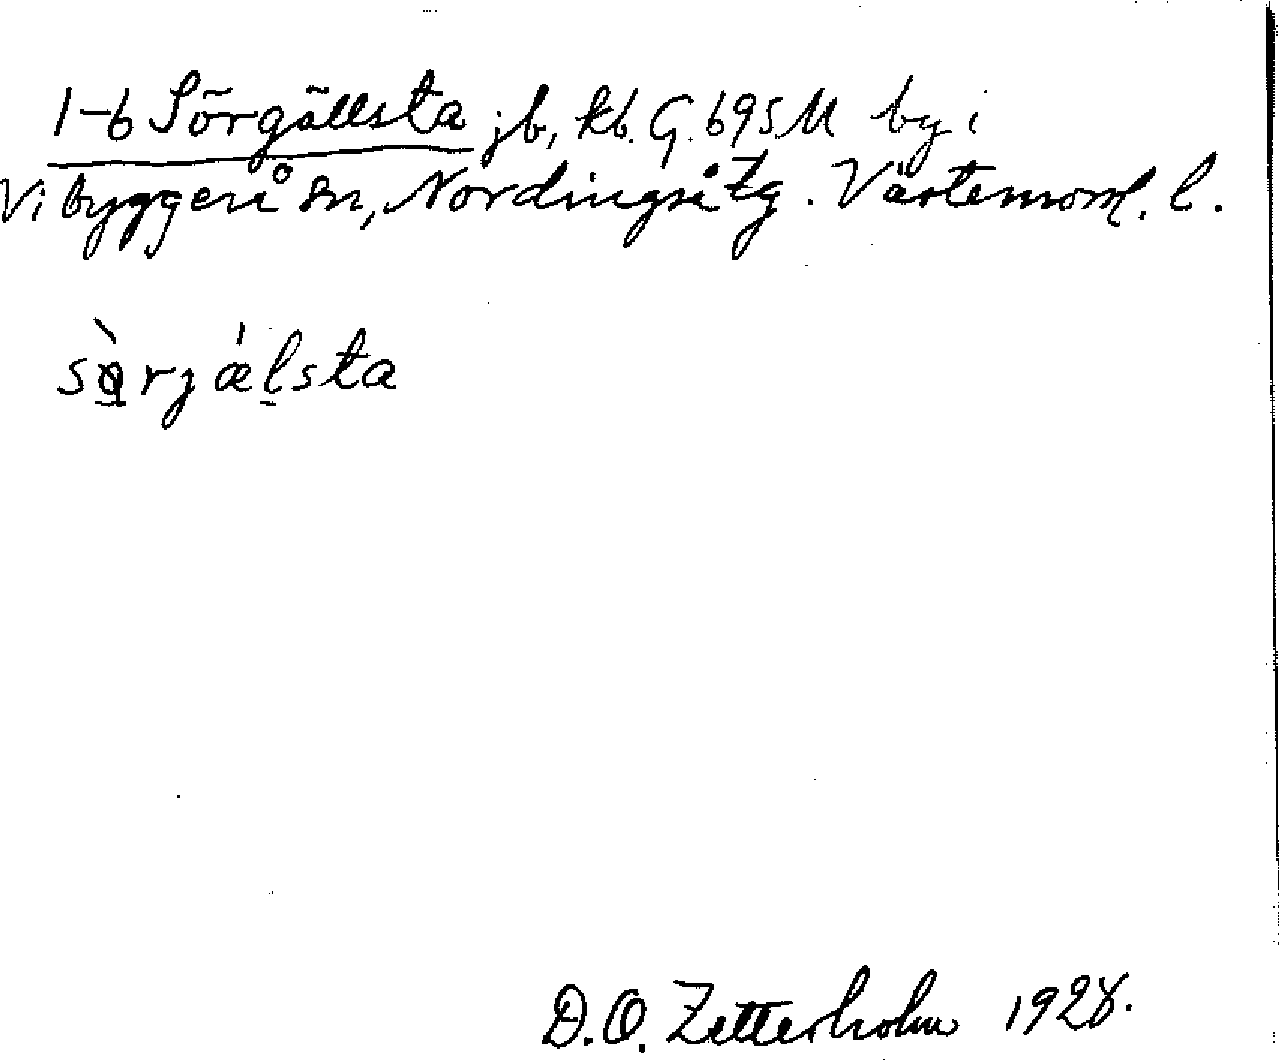 1-6 Sörgällsta jb, kb. G. 695 M by i
Vibyggerå sn, Nordingrå tg. Västernorrl. l.
sọ̀rjǽl̠sta
D.O. Zetterholm 1928.